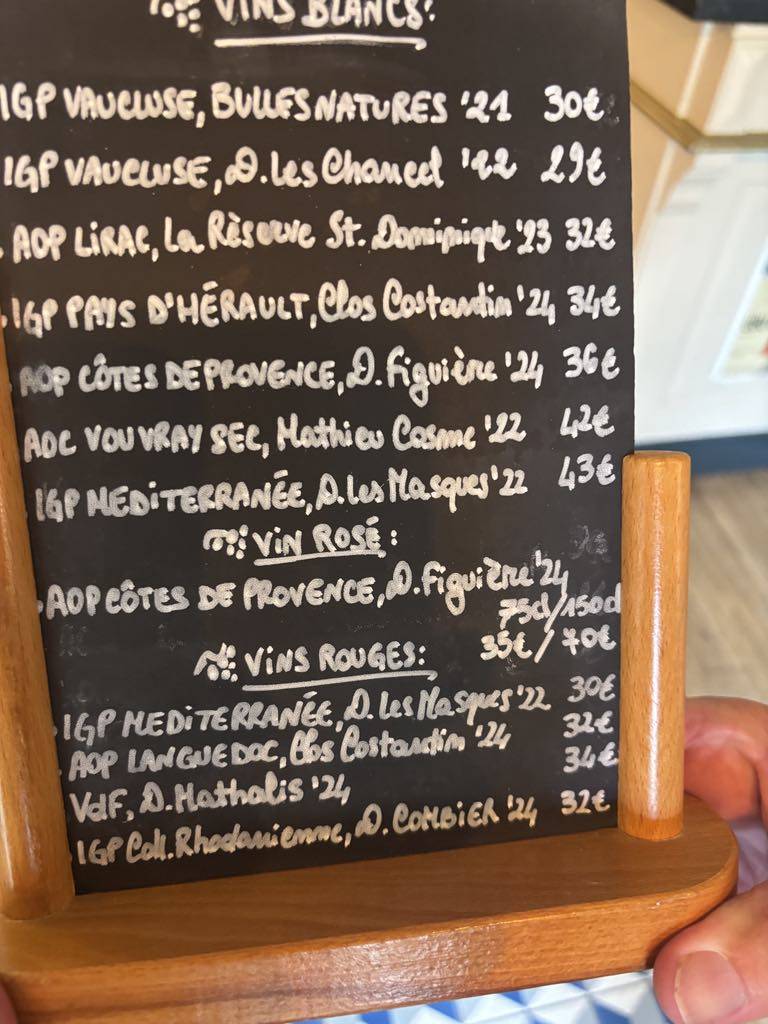 VINS BLANCS:
IGP VAUCLUSE, BULLES NATURES '21 30€
IGP VAUCLUSE, D. Les Chancel '22 29€
AOP LIRAC, La Rèserve St. Dominique '23 32€
IGP PAYS D'HÉRAULT, Clos Costantin '24 34€
AOP CÔTES DE PROVENCE, D. Figuière '24 36€
AOC VOUVRAY SEC, Mathieu Cosme '22 42€
IGP MEDITERRANÉE, D. Les Masques '22 43€
VIN ROSÉ:
AOP CÔTES DE PROVENCE, D. Figuière '24
75cl/150cl
35€/70€
VINS ROUGES:
IGP MEDITERRANÉE, D. Les Masques '22 30€
AOP LANGUEDOC, Clos Costantin '24 32€
VdF, D. Mathalis '24 34€
IGP Coll. Rhodanienne, D. COMBIER '24 32€